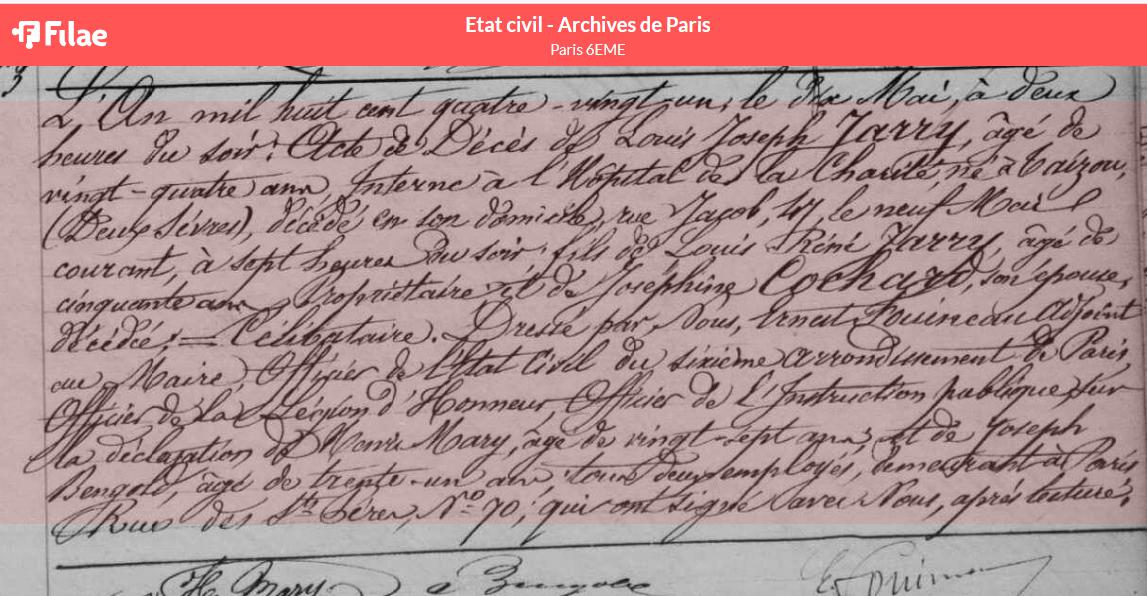 Filae
Etat civil - Archives de Paris
Paris 6EME
L'An mil huit cent quatre-vingt-un, le dix Mai, à deux
heures du soir: Acte de Décès de Louis Joseph Jarry, âgé de
vingt-quatre ans, Interne à l'Hôpital de la Charité, né à Taizon,
(Deux Sèvres), décédé en son domicile, rue Jacob, 47 le neuf Mai
courant, à sept heures du soir; fils de Louis Réné Jarry, âgé de
cinquante ans, Propriétaire et de Joséphine Cochard, son épouse,
décédée; = Célibataire. Dressé par Nous, Ernest Adjoint
au Maire, Officier de l'Etat Civil du sixième arrondissement de Paris
Officier de la Légion d'Honneur, Officier de L'Instruction publique, sur
la déclaration de Henri Mary, âgé de vingt-sept ans; et de Joseph
âgé de trente-un ans tous deux employés, demeurant à Paris
Rue des Sts Pères, No 70; qui ont signé avec Nous, après lecture.
H. Mary